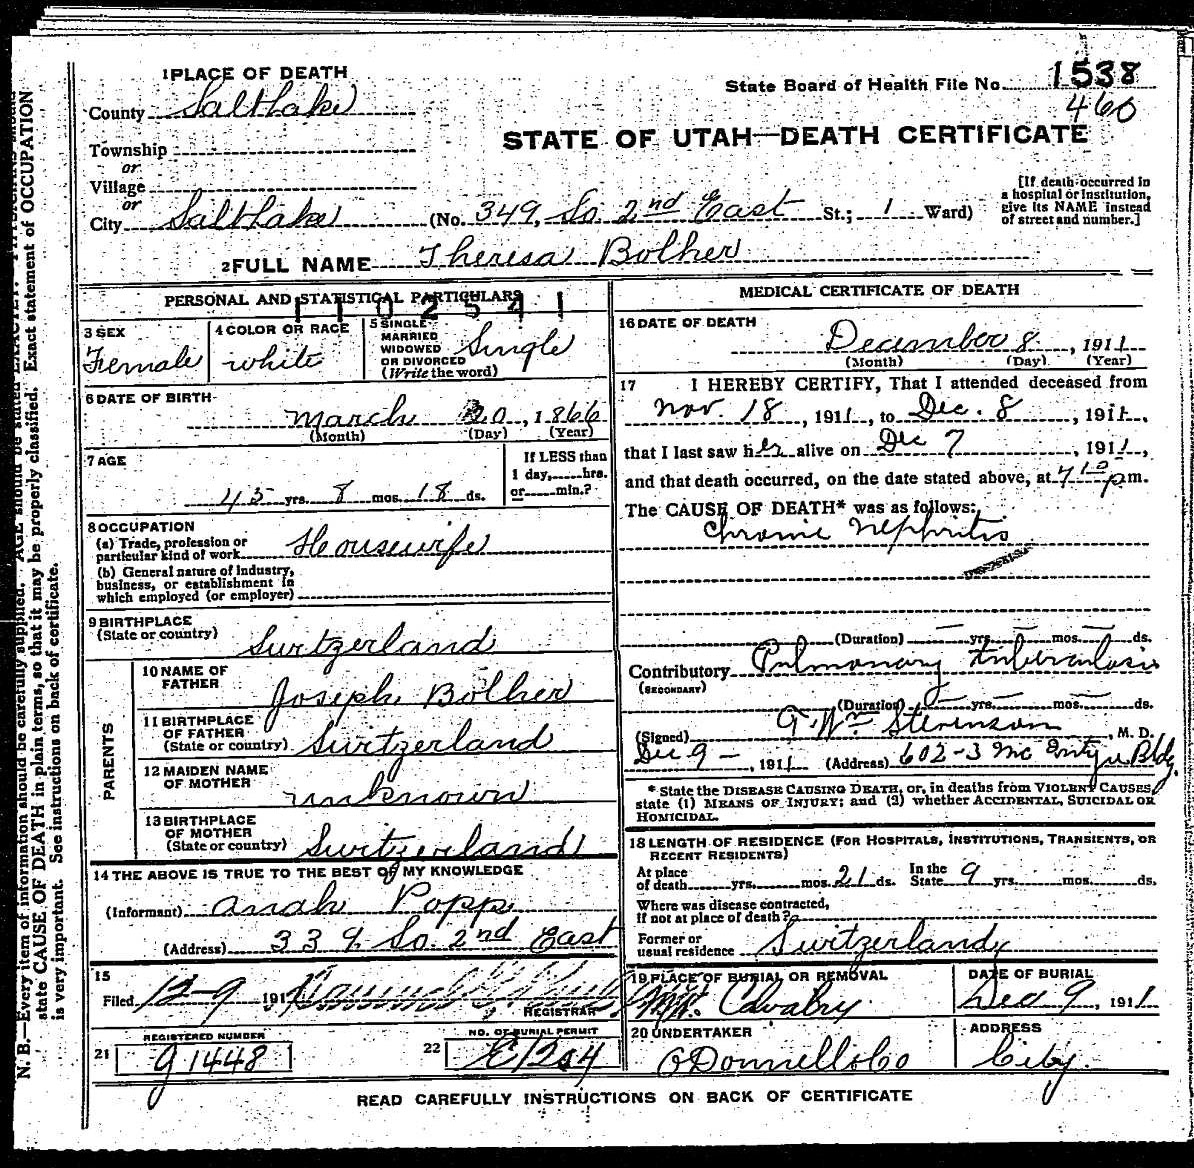 1 PLACE OF DEATH
County Salt Lake
State Board of Health File No. 1538
460
Township
or
Village
or
STATE OF UTAH—DEATH CERTIFICATE
City Salt Lake (No. 349, So. 2nd East St.; 1 Ward)
[If death occurred in
a hospital or institution,
give its NAME instead
of street and number.]
2 FULL NAME Theresa Bolher
PERSONAL AND STATISTICAL PARTICULARS
1102541
3 SEX
Female
4 COLOR OR RACE
white
5 SINGLE
MARRIED
WIDOWED
OR DIVORCED
(Write the word)
Single
6 DATE OF BIRTH
March 20, 1866
(Month) (Day) (Year)
7 AGE
45 yrs. 8 mos. 18 ds.
If LESS than
1 day, hrs.
or min.?
8 OCCUPATION
(a) Trade, profession or
particular kind of work Housewife
(b) General nature of industry,
business, or establishment in
which employed (or employer)
9 BIRTHPLACE
(State or country)
Switzerland
PARENTS
10 NAME OF
FATHER
Joseph Bolher
11 BIRTHPLACE
OF FATHER
(State or country) Switzerland
12 MAIDEN NAME
OF MOTHER
unknown
13 BIRTHPLACE
OF MOTHER
(State or country) Switzerland
14 THE ABOVE IS TRUE TO THE BEST OF MY KNOWLEDGE
(Informant) Popp
(Address) 339 So. 2nd East
15
Filed 12-9 191
REGISTRAR
REGISTERED NUMBER
21 G1448
NO. OF BURIAL PERMIT
22 E1254
MEDICAL CERTIFICATE OF DEATH
16 DATE OF DEATH
December 8, 1911
(Month) (Day) (Year)
17 I HEREBY CERTIFY, That I attended deceased from
Nov 18, 1911, to Dec. 8, 1911,
that I last saw her alive on Dec 7, 1911,
and that death occurred, on the date stated above, at 7 10 p m.
The CAUSE OF DEATH* was as follows:
Chronic Nephritis
(Duration) yrs. mos. ds.
Contributory Pulmonary Tuberculosis
(SECONDARY)
(Duration) yrs. mos. ds.
(Signed) G Wm Stevenson, M. D.
Dec 9 -, 1911 (Address) 602-3 McIntyre Bldg.
* State the DISEASE CAUSING DEATH, or, in deaths from VIOLENT CAUSES,
state (1) MEANS OF INJURY; and (2) whether ACCIDENTAL, SUICIDAL OR
HOMICIDAL.
18 LENGTH OF RESIDENCE (FOR HOSPITALS, INSTITUTIONS, TRANSIENTS, OR
RECENT RESIDENTS)
At place
of death yrs. mos. 21 ds. In the
State 9 yrs. mos. ds.
Where was disease contracted,
if not at place of death?
Former or
usual residence Switzerland
19 PLACE OF BURIAL OR REMOVAL
Mt. Calvalry
DATE OF BURIAL
Dec 9, 1911
20 UNDERTAKER
O'Donnell & Co
ADDRESS
City.
READ CAREFULLY INSTRUCTIONS ON BACK OF CERTIFICATE
N. B.—Every item of information should be carefully supplied. AGE should be stated EXACTLY.
state CAUSE OF DEATH in plain terms, so that it may be properly classified. Exact statement of OCCUPATION
is very important. See instructions on back of certificate.